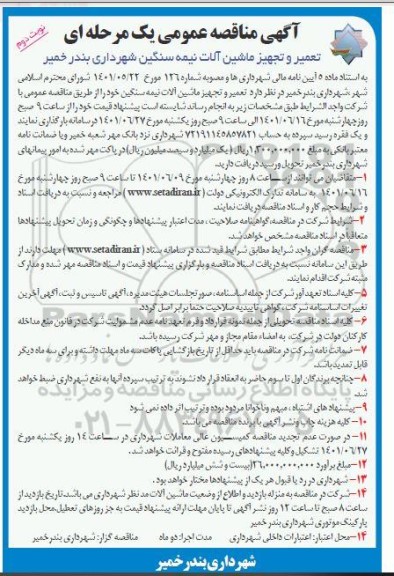 آگهی مناقصه عمومی یک مرحله ای
نوبت دوم
تعمیر و تجهیز ماشین آلات نیمه سنگین شهرداری بندر خمیر
به استناد ماده ۵ آیین نامه مالی شهرداری ها و مصوبه شماره ۱۲۶ مورخ ۱۴۰۱/۰۵/۲۲ شورای محترم اسلامی
شهر ،شهرداری بندرخمیر در نظر دارد تعمیر و تجهیز ماشین آلات نیمه سنگین خود را از طریق مناقصه عمومی با
شرکت واجد الشرایط طبق مشخصات زیر به انجام رساند شایسته است پیشنهاد قیمت خود را از ساعت ۹ صبح
روز چهارشنبه مورخ ۱۴۰۱/۰۶/۱۶ الی ساعت ۹ صبح روز یکشنبه مورخ ۱۴۰۱/۰۶/۲۷ در سامانه بارگذاری نمایند
و یک فقره رسید سپرده به حساب ۷۲۱۹۱۱۴۵۸۵۷۸۲۱ شهرداری نزد بانک مهر شعبه خمیر ویا ضمانت نامه
معتبر بانکی به مبلغ ۱,۳۰۰,۰۰۰,۰۰۰ ریال ( یک میلیارد و سیصد میلیون ریال) در پاکت مهر شده به امور پیمانهای
شهرداری بندر خمیر تحویل و رسید دریافت دارید.
۱-متقاضیان می توانند از ساعت ۸ روز چهارشنبه مورخ ۱۴۰۱/۰۶/۰۹ تا ساعت ۹ صبح روز چهارشنبه مورخ
۱۴۰۱/۰۶/۱۶ به سامانه تدارک الکترونیکی دولت ( www.setadiran.ir ) مراجعه و نسبت به دریافت اسناد
و شرایط حجم کار و اسناد مناقصه دریافت نمایند
۲-شرایط شرکت در مناقصه،گواهینامه صلاحیت ، مدت اعتبار پیشنهادها و چگونگی و زمان تحویل پیشنهادها
متعاقبا در اسناد مناقصه مشخص خواهد شد.
۳-مناقصه گران واجد شرایط مطابق شرایط قید شده در سامانه ستاد ( www.setadiran.ir ) مهلت دارند از
طریق این سامانه نسبت به دریافت اسناد مناقصه و بارگزاری پیشنهاد قیمت و اسناد مناقصه مهر شده و مدارک
مثبته شرکت اقدام نمایند.
۵-کلیه اسناد تعهد آور شرکت از جمله اساسنامه، صورتجلسات هیئت مدیره ، آگهی تاسیس و ثبت ، آگهی آخرین
تغییرات اساسنامه شرکت،گواهی تاییدیه صلاحیت حتما برابر اصل گردد.
۶-کلیه اسناد مناقصه تحویلی از جمله نمونه قرارداد و فرم تعهد نامه عدم مشمولیت شرکت در قانون منع مداخله
کارکنان دولت در شرکت، به امضاء مقام مجاز و مهر شرکت رسیده باشد.
۷-ضمانت نامه شرکت در مناقصه باید حداقل از تاریخ بازگشایی پاکات سه ماه مهلت داشته و برای سه ماه دیگر
قابل تمدید باشد.
۸-چنانچه برندگان اول تا سوم حاضر به انعقاد قرار داد نشوند به ترتیب سپرده آنها به نفع شهرداری ضبط خواهد
شد.
۹-پیشنهاد های اشتباه ، مبهم وناخوانا مردود بوده و ترتیب اثر داده نمی شود
۱۰-کلیه هزینه چاپ ونشر آگهی با برنده مناقصه می باشد.
۱۱-در صورت عدم تجدید مناقصه کمیسیون عالی معاملات شهرداری در ساعت ۱۴ روز یکشنبه مورخ
۱۴۰۱/۰۶/۲۷ تشکیل وکلیه پیشنهادهای رسیده مفتوح و قرائت خواهد شد.
۱۲-مبلغ برآورد ۲۶,۰۰۰,۰۰۰,۰۰۰ (بیست و شش میلیارد ریال)
۱۳-شهرداری در رد یا قبول هر یک از پیشنهادها مختار خواهد بود.
۱۴-شرکت در مناقصه به منزله بازدید و اطلاع از وضعیت ماشین آلات مد نظر شهرداری می باشد،تاریخ بازدید از
ساعت ۸ صبح تا ساعت ۱۲ روز نشر آگهی تا پایان مهلت ارائه پیشنهاد قیمت به جز روزهای تعطیل،محل بازدید
پارکینگ موتوری شهرداری بندر خمیر
۱۴-محل اعتبار: اعتبارات داخلی شهرداری مدت اجرا: دو ماه مناقصه گزار: شهرداری بندر خمیر
شهرداری بندر خمیر